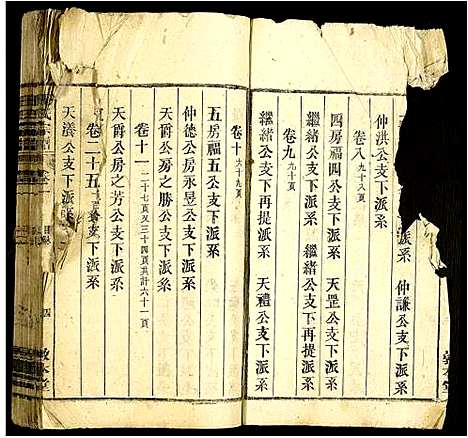 仲洪公支下派系 仲謙公支下派系
卷八 九十八頁
四房福四公支下派系 天罡公支下派系
繼緒公支下派系 繼緒公支下再提派系
卷九 九十頁
繼緒公支下再提派系 天禮公支下派系
卷十 六十九頁
五房福五公支下派系
仲德公房永昱公支下派系
天爵公房之勝公支下派系
卷十一 二十七頁又三十四頁共計六十一頁
天爵公房之芳公支下派系
卷二十五
天漾公支下派系
氏宗譜
目錄
四
敦本堂
敦本堂